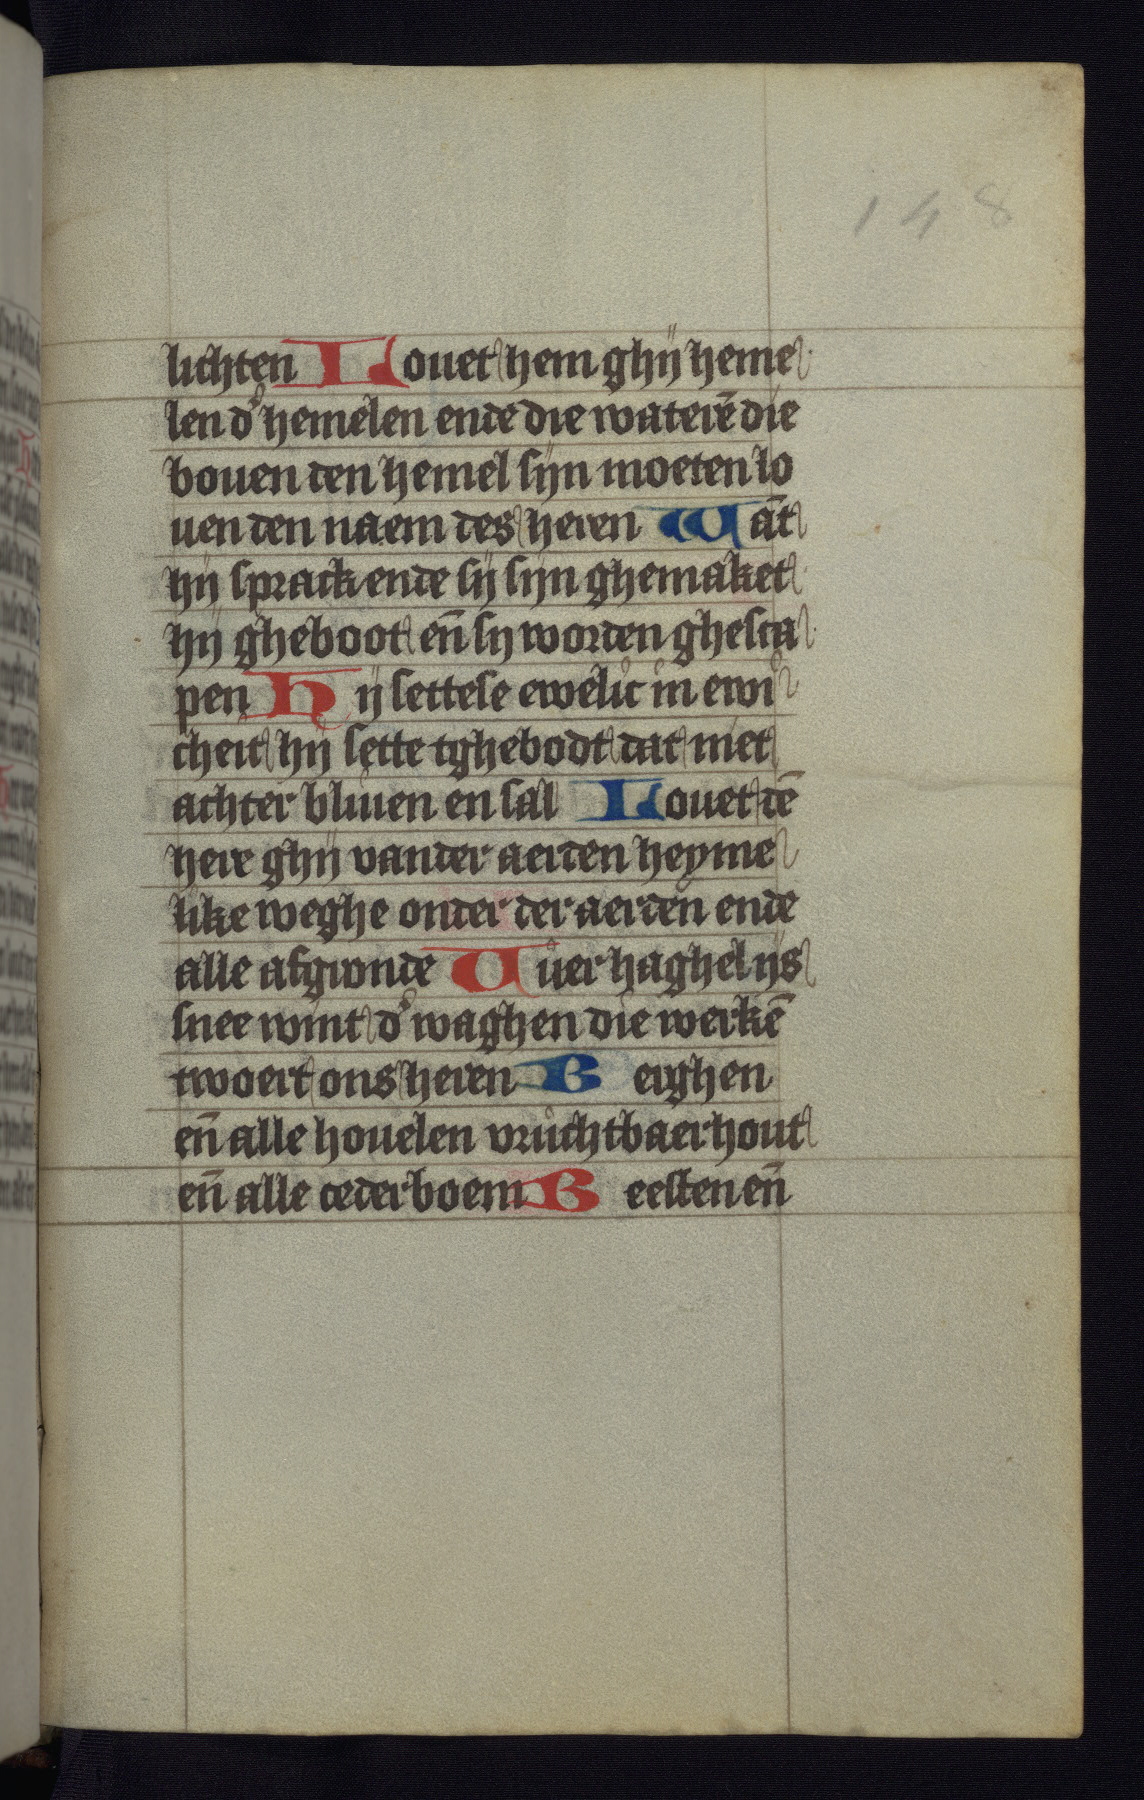 148
lichten Louet hem ghij heme
len d' hemelen ende die waterē die
bouen den hemel sijn moeten lo
uen den naem des heren Wāt
hij sprack ende sij sijn ghemaket
hij gheboot en̄ sij worden ghesca
pen Hij settese ewelic in ewi
cheit hij sette tghebodt dat niet
achter bliuen en sal Louet dē
here ghij vander aerden heyme
like weghe onder der aerden ende
alle afgronde Vuer haghel ijs
snee wint d' waghen die werkē
twoert ons heren Berghen
en̄ alle houelen vruchtbaer hout
en̄ alle cederboem Beesten en̄